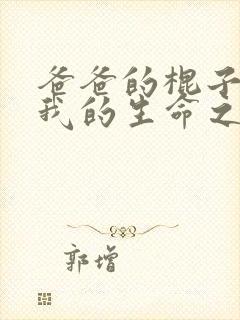 爸爸的棍子
我的生命之
郭增